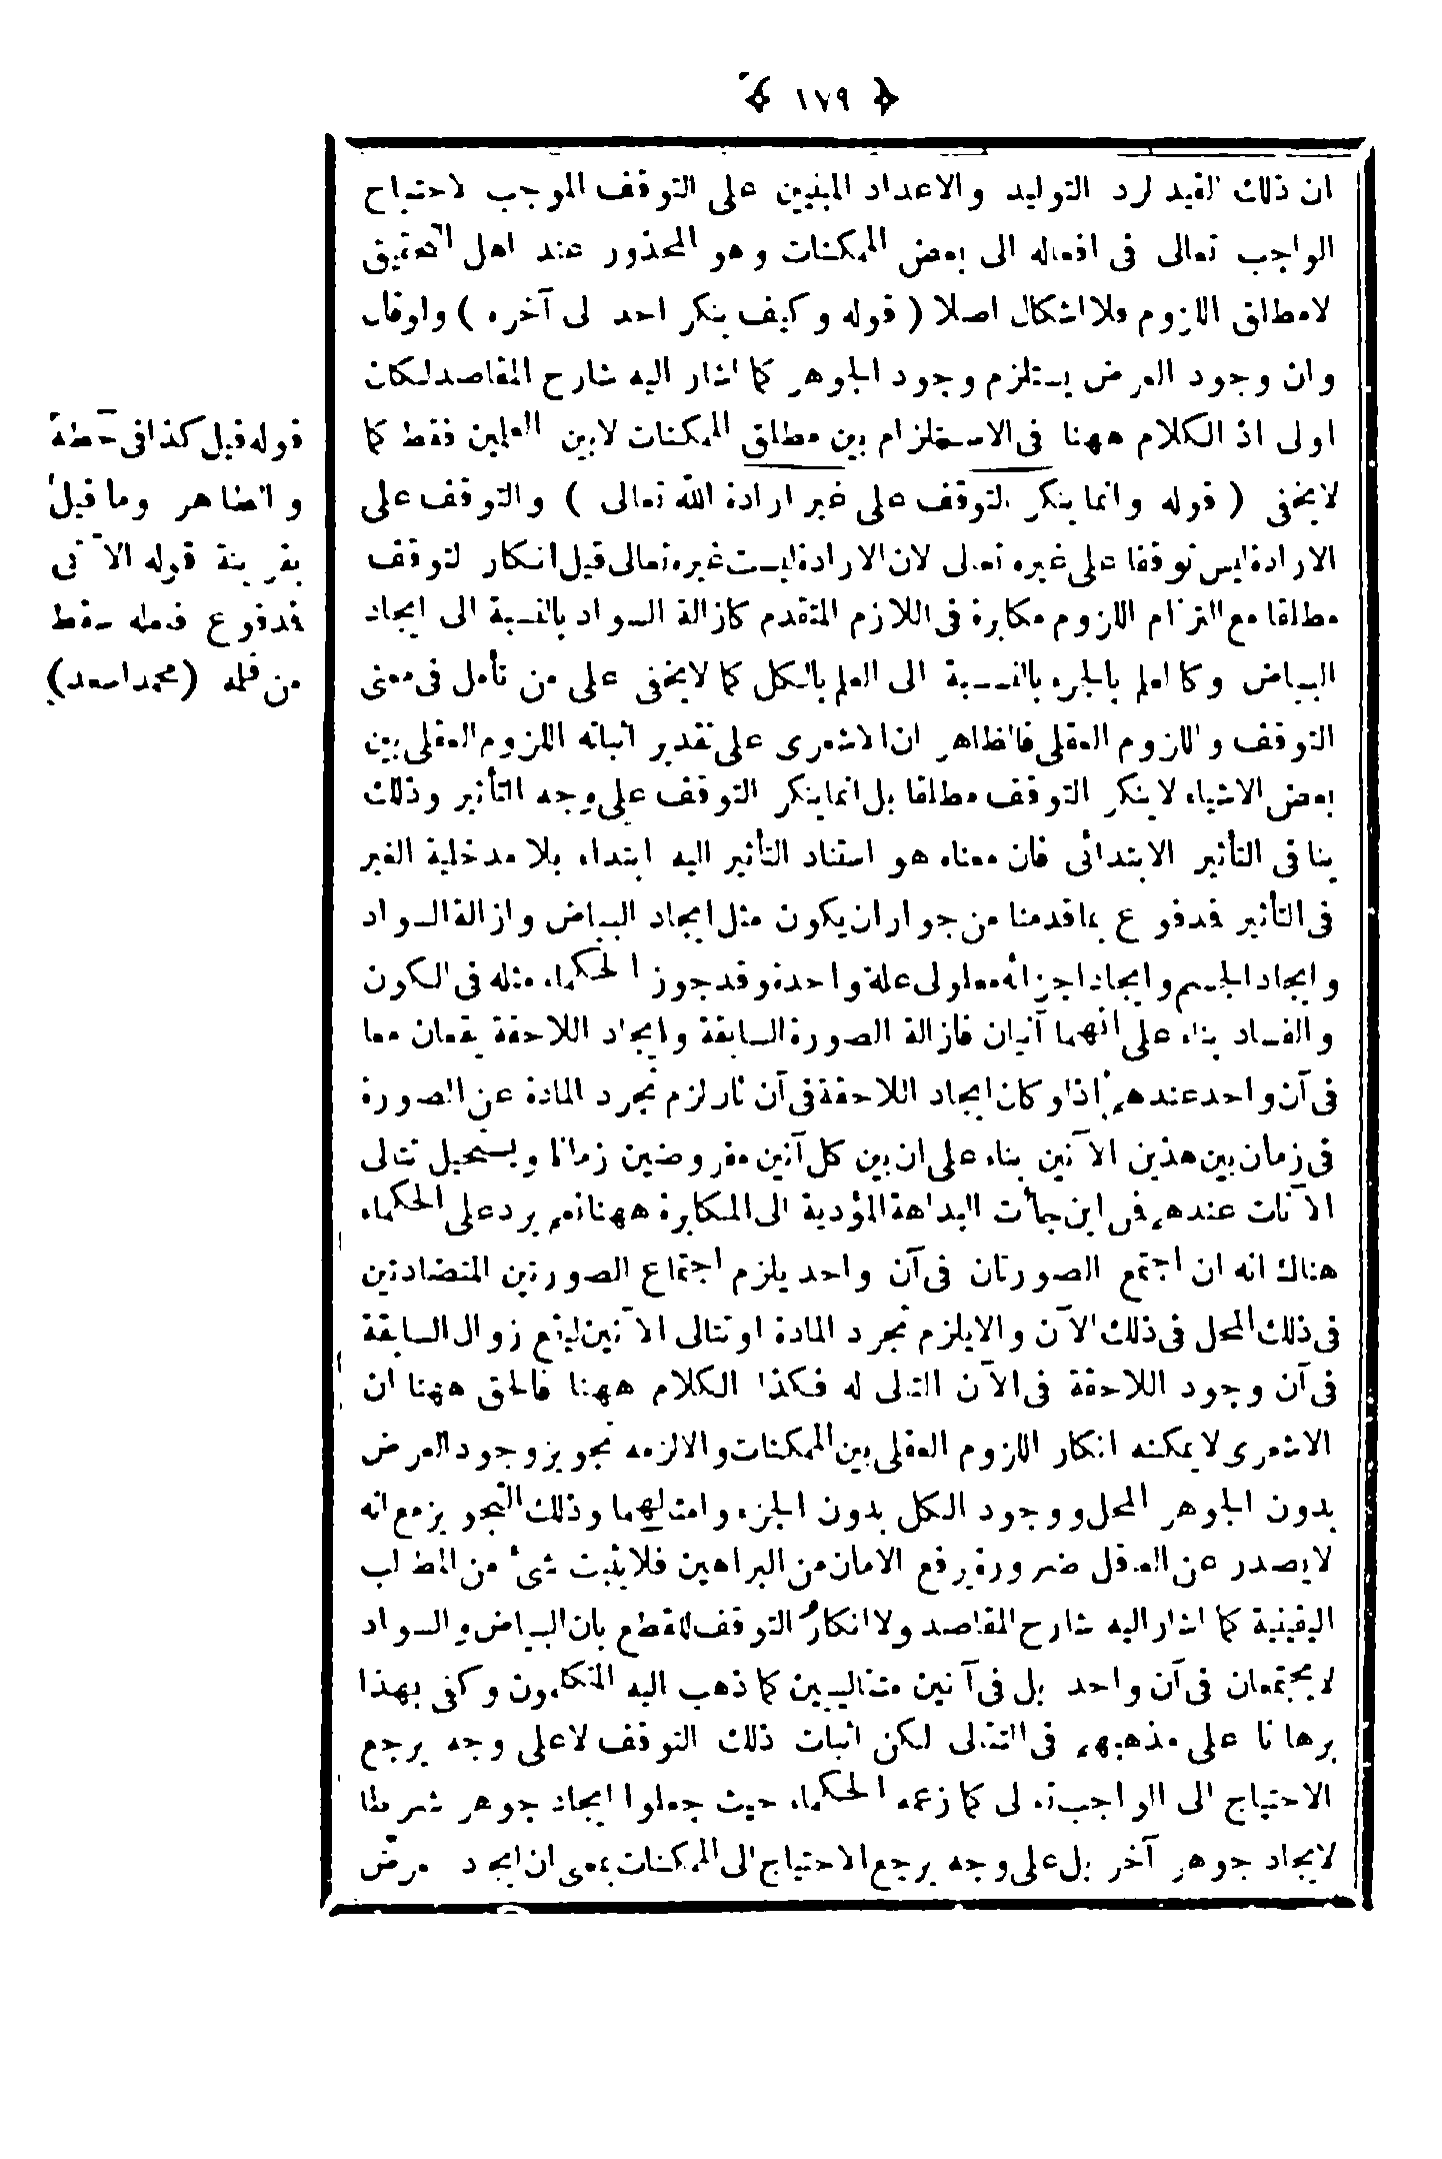 ﴿ ١٧٩ ﴾
ان ذلك القيد لرد التوليد والاعداد المبنيين على التوقف الموجب لاحتياج
الواجب تعالى فى افعاله الى بعض الممكنات وهو المحذور عند اهل التحقيق
لامطلق اللزوم فلااشكال اصلا ( قوله وكيف ينكر احد لى آخره ) ولوقال
وان وجود العرض يستلزم وجود الجوهر كما اشار اليه شارح المقاصد لكان
اولى اذ الكلام ههنا فى الاستلزام بين مطلق الممكنات لابين العلمين فقط كما
لايخفى ( قوله وانما ينكر التوقف على غير ارادة الله تعالى ) والتوقف على
الارادة ليس توقفا على غيره تعالى لان الارادة ليست غيره تعالى قيل انكار التوقف
مطلقا مع التزام اللزوم مكابرة فى اللازم المتقدم كازالة السواد بالنسبة الى ايجاد
البياض وكالعلم بالجزء بالنسبة الى العلم بالكل كما لايخفى على من تأمل فى معنى
التوقف واللزوم العقلى فالظاهر ان الاشعرى على تقدير اثباته اللزوم العقلى بين
بعض الاشياء لاينكر التوقف مطلقا بل انما ينكر التوقف على وجه التأثير وذلك
ينافى التأثير الابتدائى فان معناه هو استناد التأثير اليه ابتداء بلا مدخلية الغير
فى التأثير فدفوع بماقدمنا من جواز ان يكون مثل ايجاد البياض وازالة السواد
وايجاد الجسم وايجاد اجزائه معلولى علة واحدة وقد جوز الحكماء مثله فى الكون
والفساد بناء على انهما آنيان فازالة الصورة السابقة وايجاد اللاحقة يقعان معا
فى آن واحد عندهم اذ لو كان ايجاد اللاحقة فى آن ثان لزم تجرد المادة عن الصورة
فى زمان بين هذين الآنين بناء على ان بين كل آنين مفروضين زمانا ويستحيل تتالى
الآنات عندهم فن اين جائت البداهة المؤدية الى المكابرة ههنا نعم يرد على الحكماء
هناك انه ان اجتمع الصورتان فى آن واحد يلزم اجتماع الصورتين المتضادتين
فى ذلك المحل فى ذلك الآن والايلزم تجرد المادة او تتالى الآنين ليقع زوال السابقة
فى آن وجود اللاحقة فى الآن التالى له فكذا الكلام ههنا فالحق ههنا ان
الاشعرى لايمكنه انكار اللزوم العقلى بين الممكنات والالزمه تجويز وجود العرض
بدون الجوهر المحل ووجود الكل بدون الجزء وامثالهما وذلك التجويز مع انه
لايصدر عن العاقل ضرورة يرفع الامان من البراهين فلايثبت شئ من المطالب
اليقينية كما اشار اليه شارح المقاصد ولاانكار التوقف للقطع بان البياض والسواد
لايجتمعان فى آن واحد بل فى آنين متتاليين كما ذهب اليه المتكلمون وكفى بهذا
برهانا على مذهبهم فى التتالى لكن اثبات ذلك التوقف لاعلى وجه يرجع
الاحتياج الى الواجب تعالى كما زعمه الحكماء حيث جعلوا ايجاد جوهر شرطا
لايجاد جوهر آخر بل على وجه يرجع الاحتياج الى الممكنات بمعنى ان ايجاد عرض
قوله قيل كذا فى خطه
والظاهر وما قيل
بقرينة قوله الآتى
فدفوع فعله سقط
من قلمه (محمد اسعد)